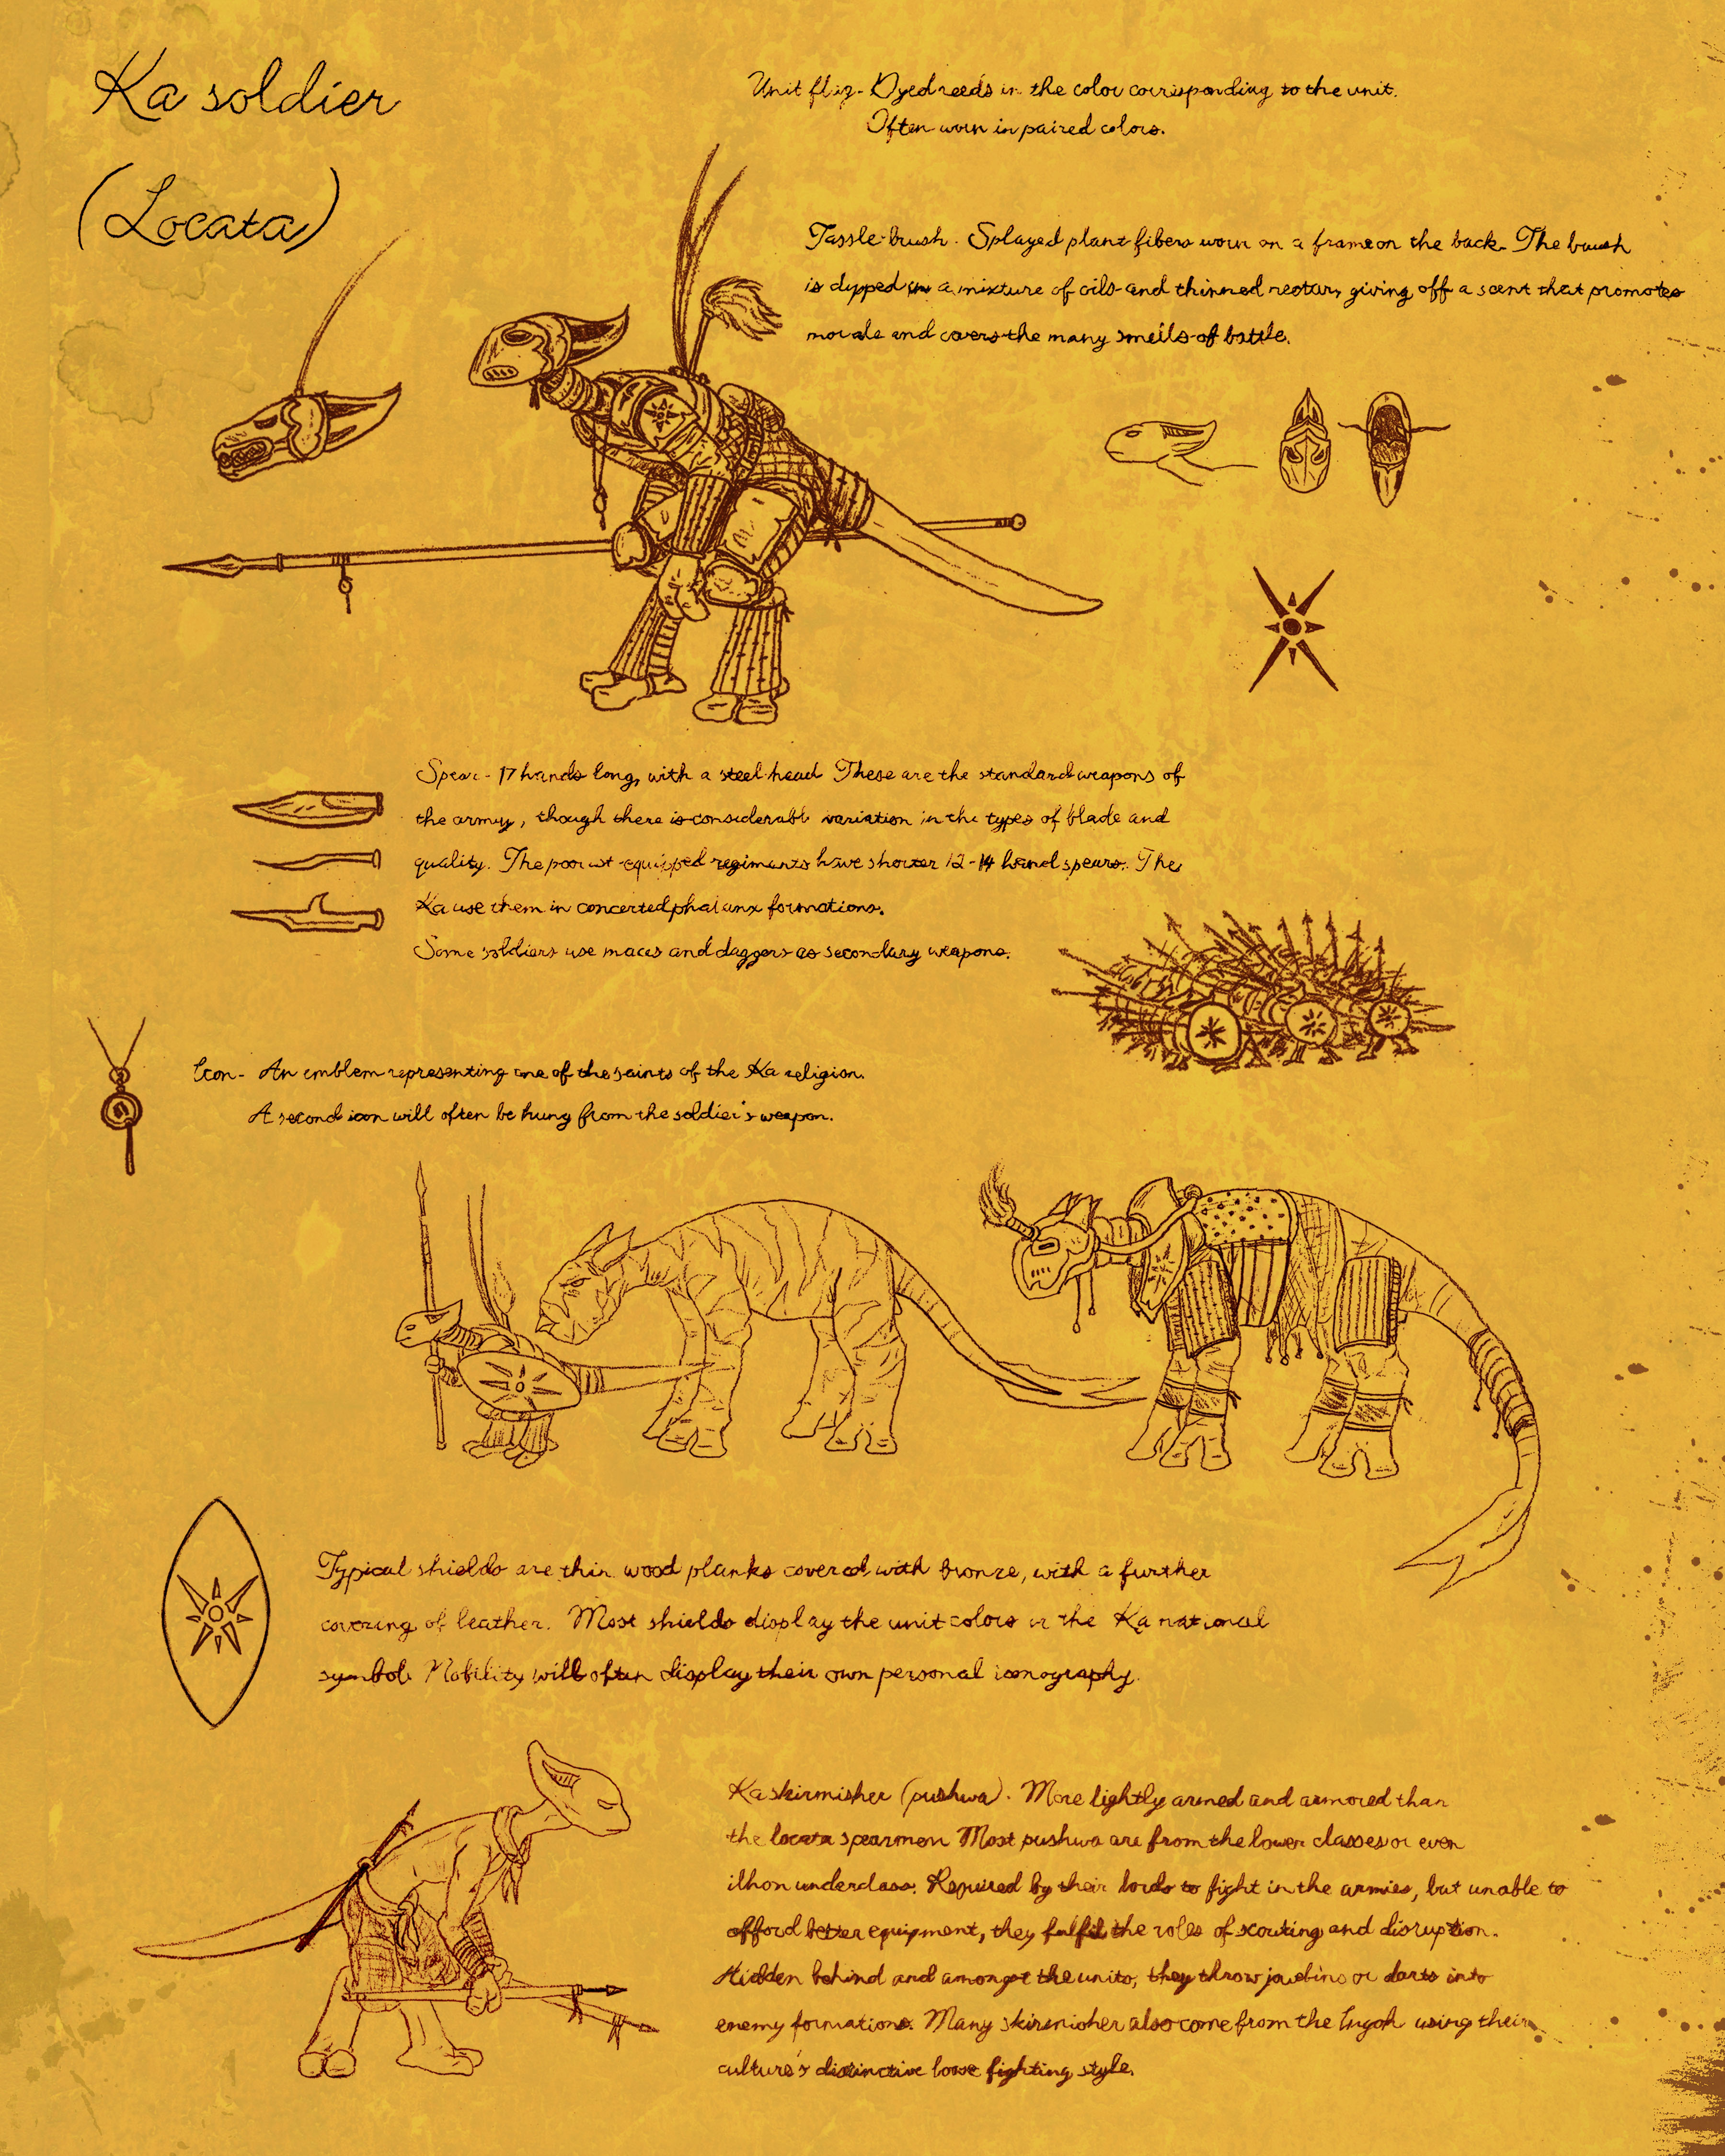 Ka soldier
(Locata)
Unit flag - Dyed reeds in the color corresponding to the unit.
Often worn in paired colors.
Tassle-brush - Splayed plant fibers worn on a frame on the back. The brush
is dypped in a mixture of oils and thinned nectar, giving off a scent that promotes
morale and covers the many smells of battle.
Spear - 17 hands long, with a steel head These are the standard weapons of
the army, though there is considerable variation in the types of blade and
quality. The poorest equipped regiments have shorter 12-14 hand spears. The
Ka use them in concerted phalanx formations.
Some soldiers use maces and daggers as secondary weapons.
Icon - An emblem representing one of the saints of the Ka religion.
A second icon will often be hung from the soldier's weapon.
Typical shields are thin wood planks covered with bronze, with a further
covering of leather. Most shields display the unit colors in the Ka national
symbol. Nobility will often display their own personal iconography.
Ka skirmisher (pushwa). More lightly armed and armored than
the locata spearmen Most pushwa are from the lower classes or even
ilhon underclass. Required by their lords to fight in the armies, but unable to
afford better equipment, they fulfil the roles of scouting and disruption.
Hidden behind and amongst the units, they throw javelins or darts into
enemy formations. Many skirmisher also come from the using their
culture's distinctive loose fighting style.